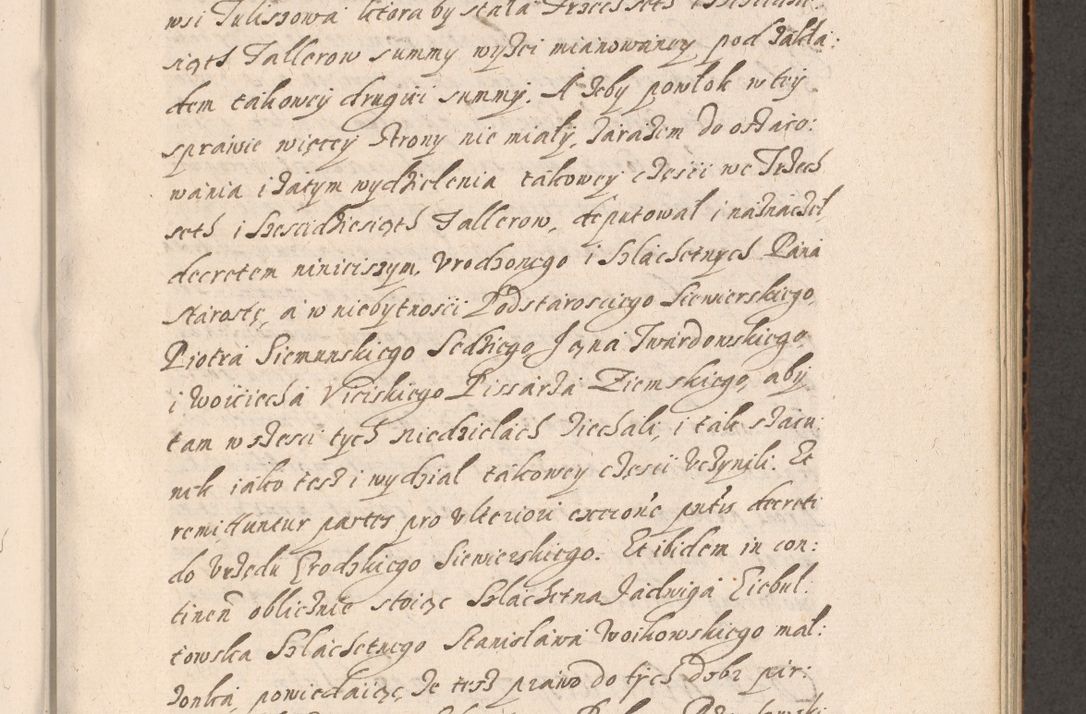 wsi Tuliszowa ktora by stała Trzechseth i
siąth Tallerow summy wyżei mianowaney pod zakła:
dem takowey drugiei summy. A żeby powłok w tey
sprawie więcey strony nie miały, zarazem do oszaco:
wania i zatym wydzielenia takowey części we Trzech
seth i sześcidziesiąth Tallerow, deputował i naznaczeł
decretem ninieiszym. Urodzonego i szlachetnych Pana
starostę, a w niebytności Podstarosciego Siewierskiego,
Piotra Siemunskiego Sędziego, Jana Twardowskiego,
i Woiciecha Viciskiego Pissarza Ziemskiego, aby
tam w sześci tych niedzielach ziechali, i tak szacu:
nek iako tesz i wydział takowey części uczynili. Et
remittuntur partes pro ulteriori exeetione pntis decreti
do Urzędu Grodzkiego Siewierskiego. Et ibidem in con:
tinen oblicznie stoiąc Szlachetna Jadwiga Ciebul:
towska Szlachetnego Stanisława Woikowskiego mał:
żonka, powiedaiąc że tesz prawo do tych dobr pir: